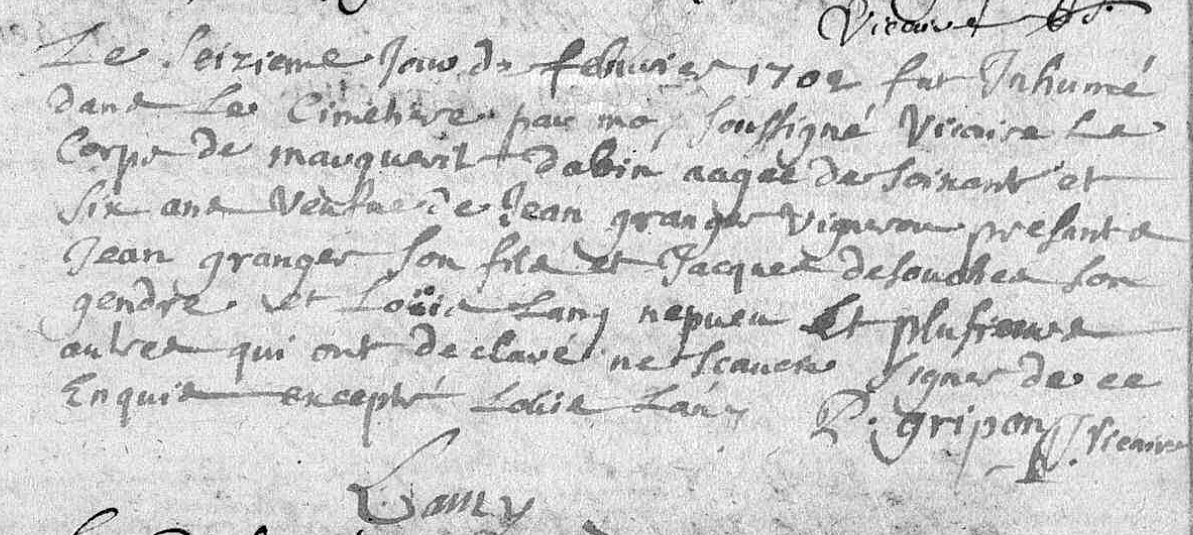 Vicaire
Le Seizieme Jour de febuvier 1702 fut Inhumé
dans Le Cimetiere par moy soussigné Vicaire Le
Corps de marguerit dabin aagée de soixante et
six ans Veufue de Jean granger Vigneron presants
Jean granger son fils et Jacques desouches son
gendre et Loüis Lamy nepueu Et plusieurs
autres qui ont declaré ne scauoir signer de ce
Enquis excepté Loüis Lamy
P. gripon Vicaire
Lamy